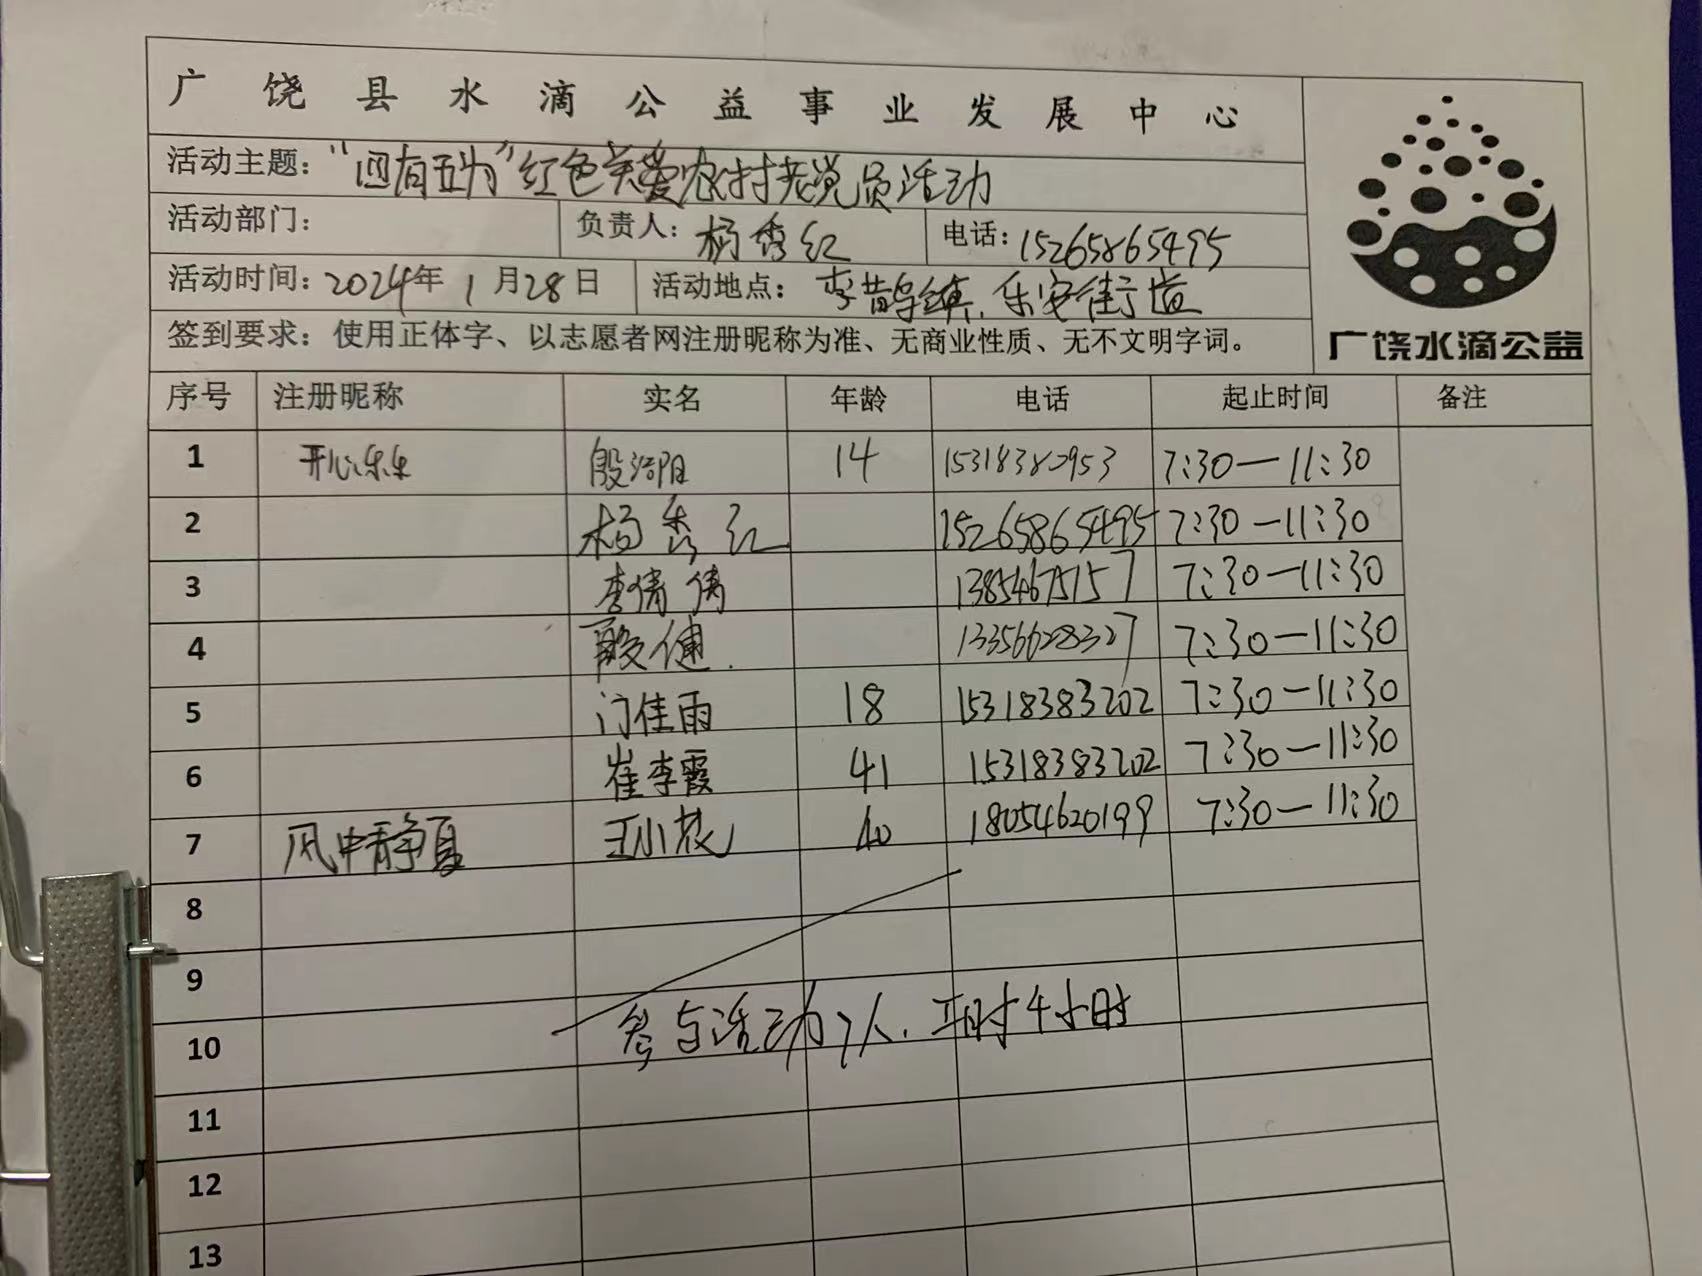 广饶县水滴公益事业发展中心
活动主题：“四有五为”红色关爱农村老党员活动
活动部门： 负责人：杨秀红 电话：15265865495
活动时间：2024年1月28日 活动地点：李鹊镇、乐安街道
签到要求：使用正体字、以志愿者网注册昵称为准、无商业性质、无不文明字词。
广饶水滴公益
序号 注册昵称 实名 年龄 电话 起止时间 备注
1 开心乐乐 殷洛阳 14 15318382953 7:30—11:30
2 杨秀红 15265865495 7:30—11:30
3 李倩倩 13854675157 7:30—11:30
4 殷健 13356628327 7:30—11:30
5 门佳雨 18 15318383202 7:30—11:30
6 崔李霞 41 15318383202 7:30—11:30
7 风中静夏 王小花 40 18054620199 7:30—11:30
8
9
10 参与活动7人、平时4小时
11
12
13